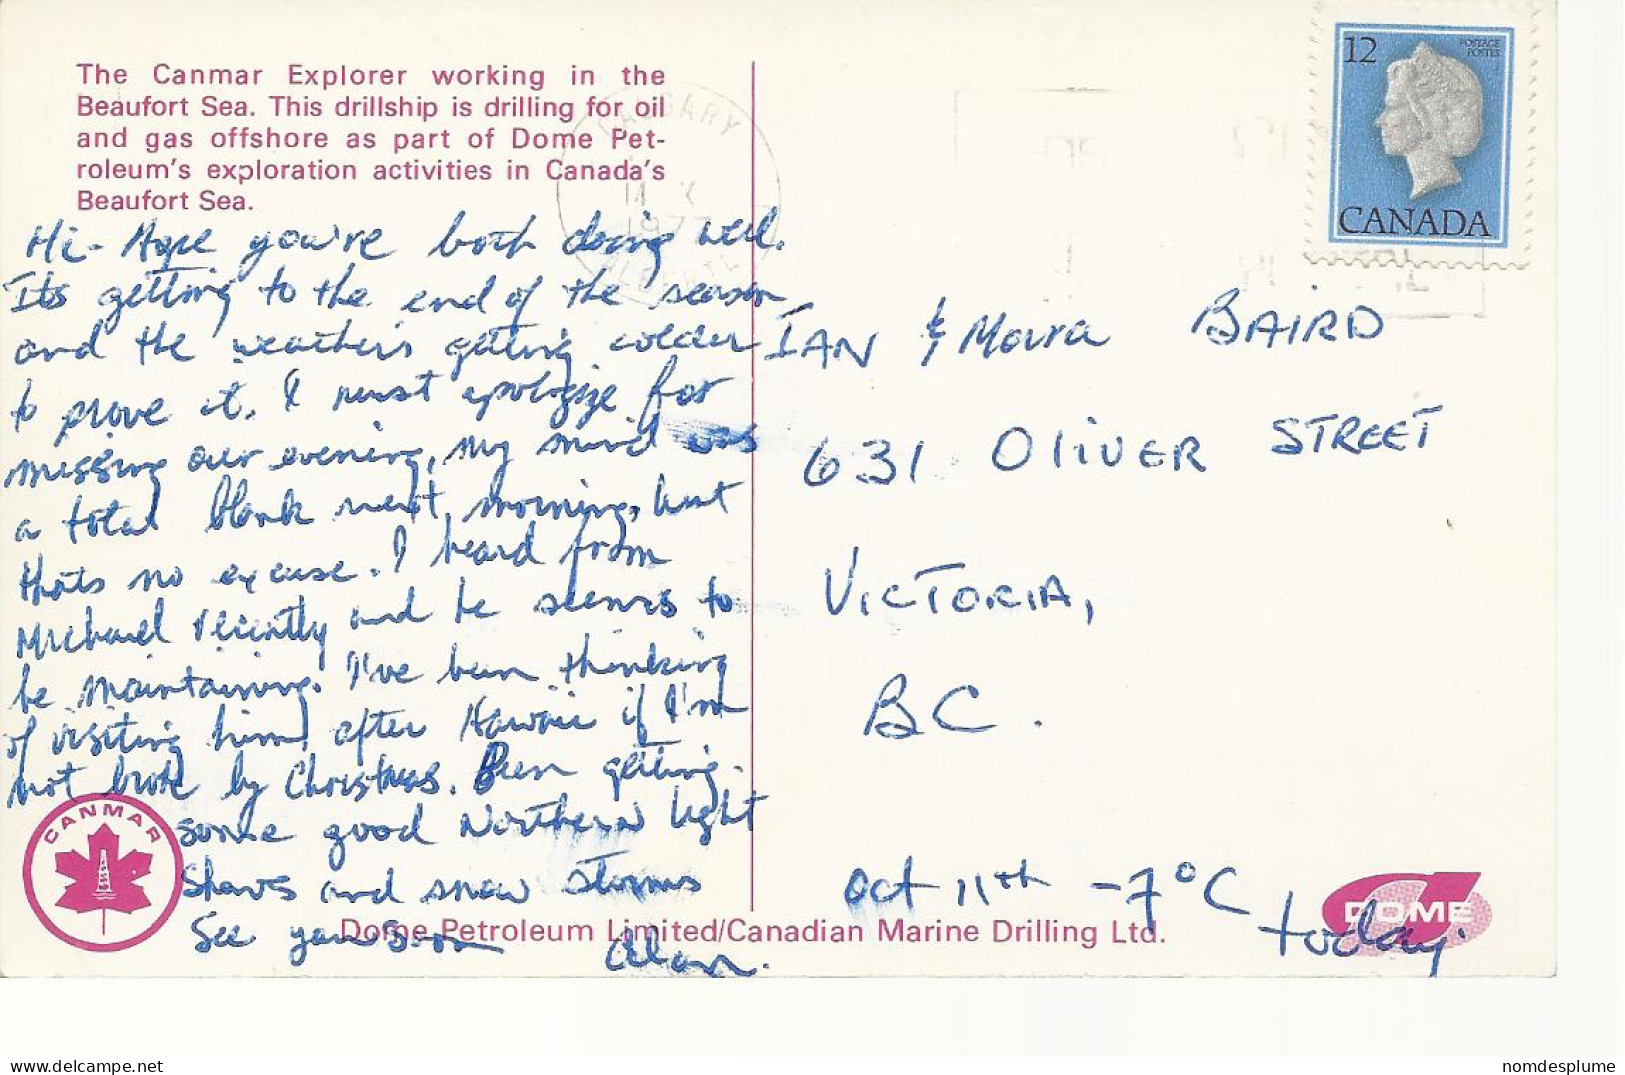 The Canmar Explorer working in the
Beaufort Sea. This drillship is drilling for oil
and gas offshore as part of Dome Pet-
roleum's exploration activities in Canada's
Beaufort Sea.
CALGARY
1977
ALBERTA
12
POSTAGE
POSTES
CANADA
Hi - Hope you're both doing well.
Its getting to the end of the season
and the weather's getting colder
to prove it. I must apologize for
missing our evening, my mind was
a total blank next morning, but
thats no excuse. I heard from
Michael recently and he seems to
be maintaining. I've been thinking
of visiting him after Hawaii if I'm
not broke by Christmas. Been getting
some good Northern Light
Shows and snow storms
See you soon
Alan.
IAN & Moira BAIRD
631 OLIVER STREET
VICTORIA,
BC.
Oct 11th -7°C today.
CANMAR
Dome Petroleum Limited/Canadian Marine Drilling Ltd.
DOME
delcampe.net
nomdesplume